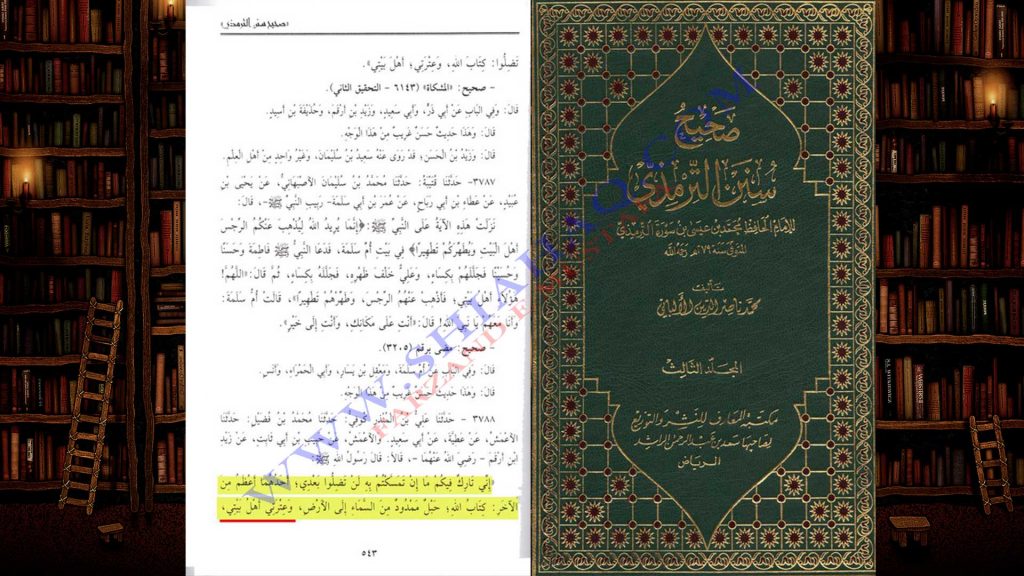 «صحيح سنن الترمذي»
تَضِلُّوا: كِتَابَ اللهِ، وَعِتْرَتِي؛ أَهْلَ بَيْتِي».
- صحيح: «المشكاة» (٦١٤٣ - التحقيق الثاني).
قَالَ: وَفِي الْبَابِ عَنْ أَبِي ذَرٍّ، وَأَبِي سَعِيدٍ، وَزَيْدِ بْنِ أَرْقَمَ، وَحُذَيْفَةَ بْنِ أَسِيدٍ.
قَالَ: وَهَذَا حَدِيثٌ حَسَنٌ غَرِيبٌ مِنْ هَذَا الْوَجْهِ.
قَالَ: وَزَيْدُ بْنُ الْحَسَنِ، قَدْ رَوَى عَنْهُ سَعِيدُ بْنُ سُلَيْمَانَ، وَغَيْرُ وَاحِدٍ مِنْ أَهْلِ الْعِلْمِ.
٣٧٨٧- حَدَّثَنَا قُتَيْبَةُ: حَدَّثَنَا مُحَمَّدُ بْنُ سُلَيْمَانَ الأَصْبَهَانِيُّ، عَنْ يَحْيَى بْنِ
عُبَيْدٍ، عَنْ عَطَاءِ بْنِ أَبِي رَبَاحٍ، عَنْ عُمَرَ بْنِ أَبِي سَلَمَةَ- رَبِيبِ النَّبِيِّ ﷺ-، قَالَ:
نَزَلَتْ هَذِهِ الآيَةُ عَلَى النَّبِيِّ ﷺ: ﴿إِنَّمَا يُرِيدُ اللهُ لِيُذْهِبَ عَنْكُمُ الرِّجْسَ
أَهْلَ الْبَيْتِ وَيُطَهِّرَكُمْ تَطْهِيراً﴾ فِي بَيْتِ أُمِّ سَلَمَةَ، فَدَعَا النَّبِيُّ ﷺ فَاطِمَةَ وَحَسَنًا
وَحُسَيْنًا فَجَلَّلَهُمْ بِكِسَاءٍ، وَعَلِيٌّ خَلْفَ ظَهْرِهِ، فَجَلَّلَهُ بِكِسَاءٍ، ثُمَّ قَالَ: «اللَّهُمَّ!
هَؤُلَاءِ أَهْلُ بَيْتِي، فَأَذْهِبْ عَنْهُمُ الرِّجْسَ، وَطَهِّرْهُمْ تَطْهِيراً»، قَالَتْ أُمُّ سَلَمَةَ:
وَأَنَا مَعَهُمْ يَا نَبِيَّ اللهِ! قَالَ: «أَنْتِ عَلَى مَكَانِكِ، وَأَنْتِ إِلَى خَيْرٍ».
- صحيح: مضى برقم (٣٢٠٥).
قَالَ: وَفِي الْبَابِ عَنْ أُمِّ سَلَمَةَ، وَمَعْقِلِ بْنِ يَسَارٍ، وَأَبِي الْحَمْرَاءِ، وَأَنَسٍ.
قَالَ: وَهَذَا حَدِيثٌ غَرِيبٌ مِنْ هَذَا الْوَجْهِ.
٣٧٨٨- حَدَّثَنَا عَلِيُّ بْنُ الْمُنْذِرِ الْكُوفِيُّ: حَدَّثَنَا مُحَمَّدُ بْنُ فُضَيْلٍ: حَدَّثَنَا
الأَعْمَشُ، عَنْ عَطِيَّةَ، عَنْ أَبِي سَعِيدٍ وَالأَعْمَشُ، عَنْ حَبِيبِ بْنِ أَبِي ثَابِتٍ، عَنْ زَيْدِ
ابْنِ أَرْقَمَ - رَضِيَ اللهُ عَنْهُمَا -، قَالَا: قَالَ رَسُولُ اللهِ ﷺ:
«إِنِّي تَارِكٌ فِيكُمْ مَا إِنْ تَمَسَّكْتُمْ بِهِ لَنْ تَضِلُّوا بَعْدِي؛ أَحَدُهُمَا أَعْظَمُ مِنَ
الآخَرِ: كِتَابُ اللهِ؛ حَبْلٌ مَمْدُودٌ مِنَ السَّمَاءِ إِلَى الأَرْضِ، وَعِتْرَتِي أَهْلُ بَيْتِي،
٥٤٣
صَحِيحُ
سُنَنِ التِّرْمِذِيِّ
للإمام الحافظ محمد بن عيسى بن سورة الترمذي
المتوفى سنة ٢٧٩هـ رحمه الله
تأليف
محمد ناصر الدين الألباني
المجلد الثالث
مكتبة المعارف للنشر والتوزيع
لصاحبها سعد بن عبد الرحمن الراشد
الرياض